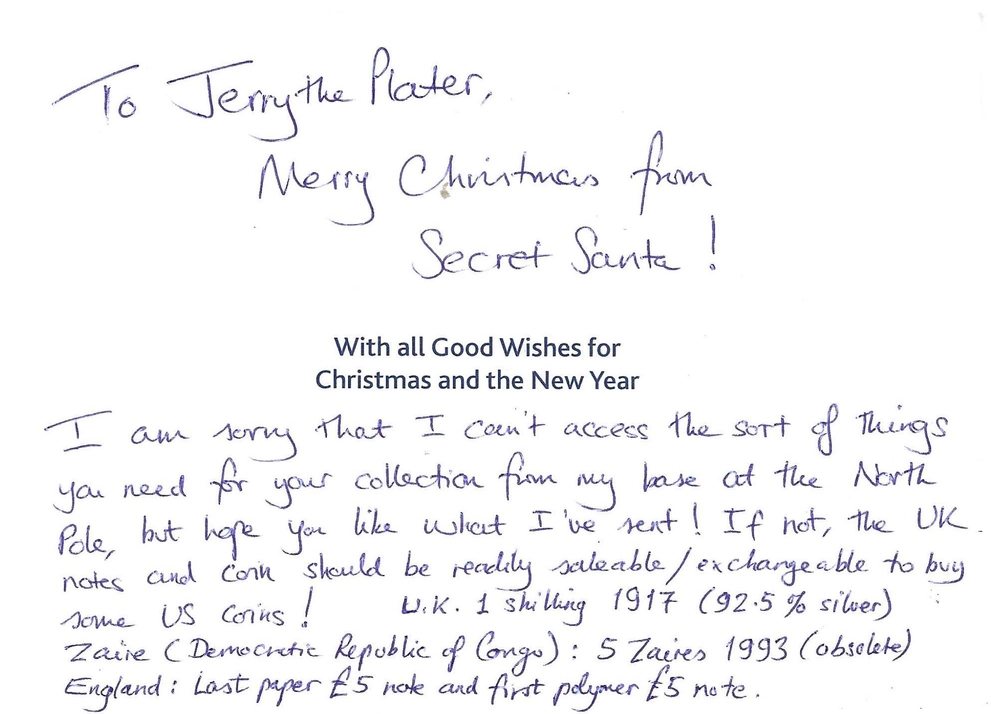 To Jerry the Plater,
Merry Christmas from
Secret Santa!
With all Good Wishes for
Christmas and the New Year
I am sorry that I can't access the sort of things
you need for your collection from my base at the North
Pole, but hope you like what I've sent! If not, the UK
notes and coin should be readily saleable/exchangeable to buy
some US coins! U.K. 1 shilling 1917 (92.5% silver)
Zaire (Democratic Republic of Congo): 5 Zaires 1993 (obsolete)
England: Last paper £5 note and first polymer £5 note.